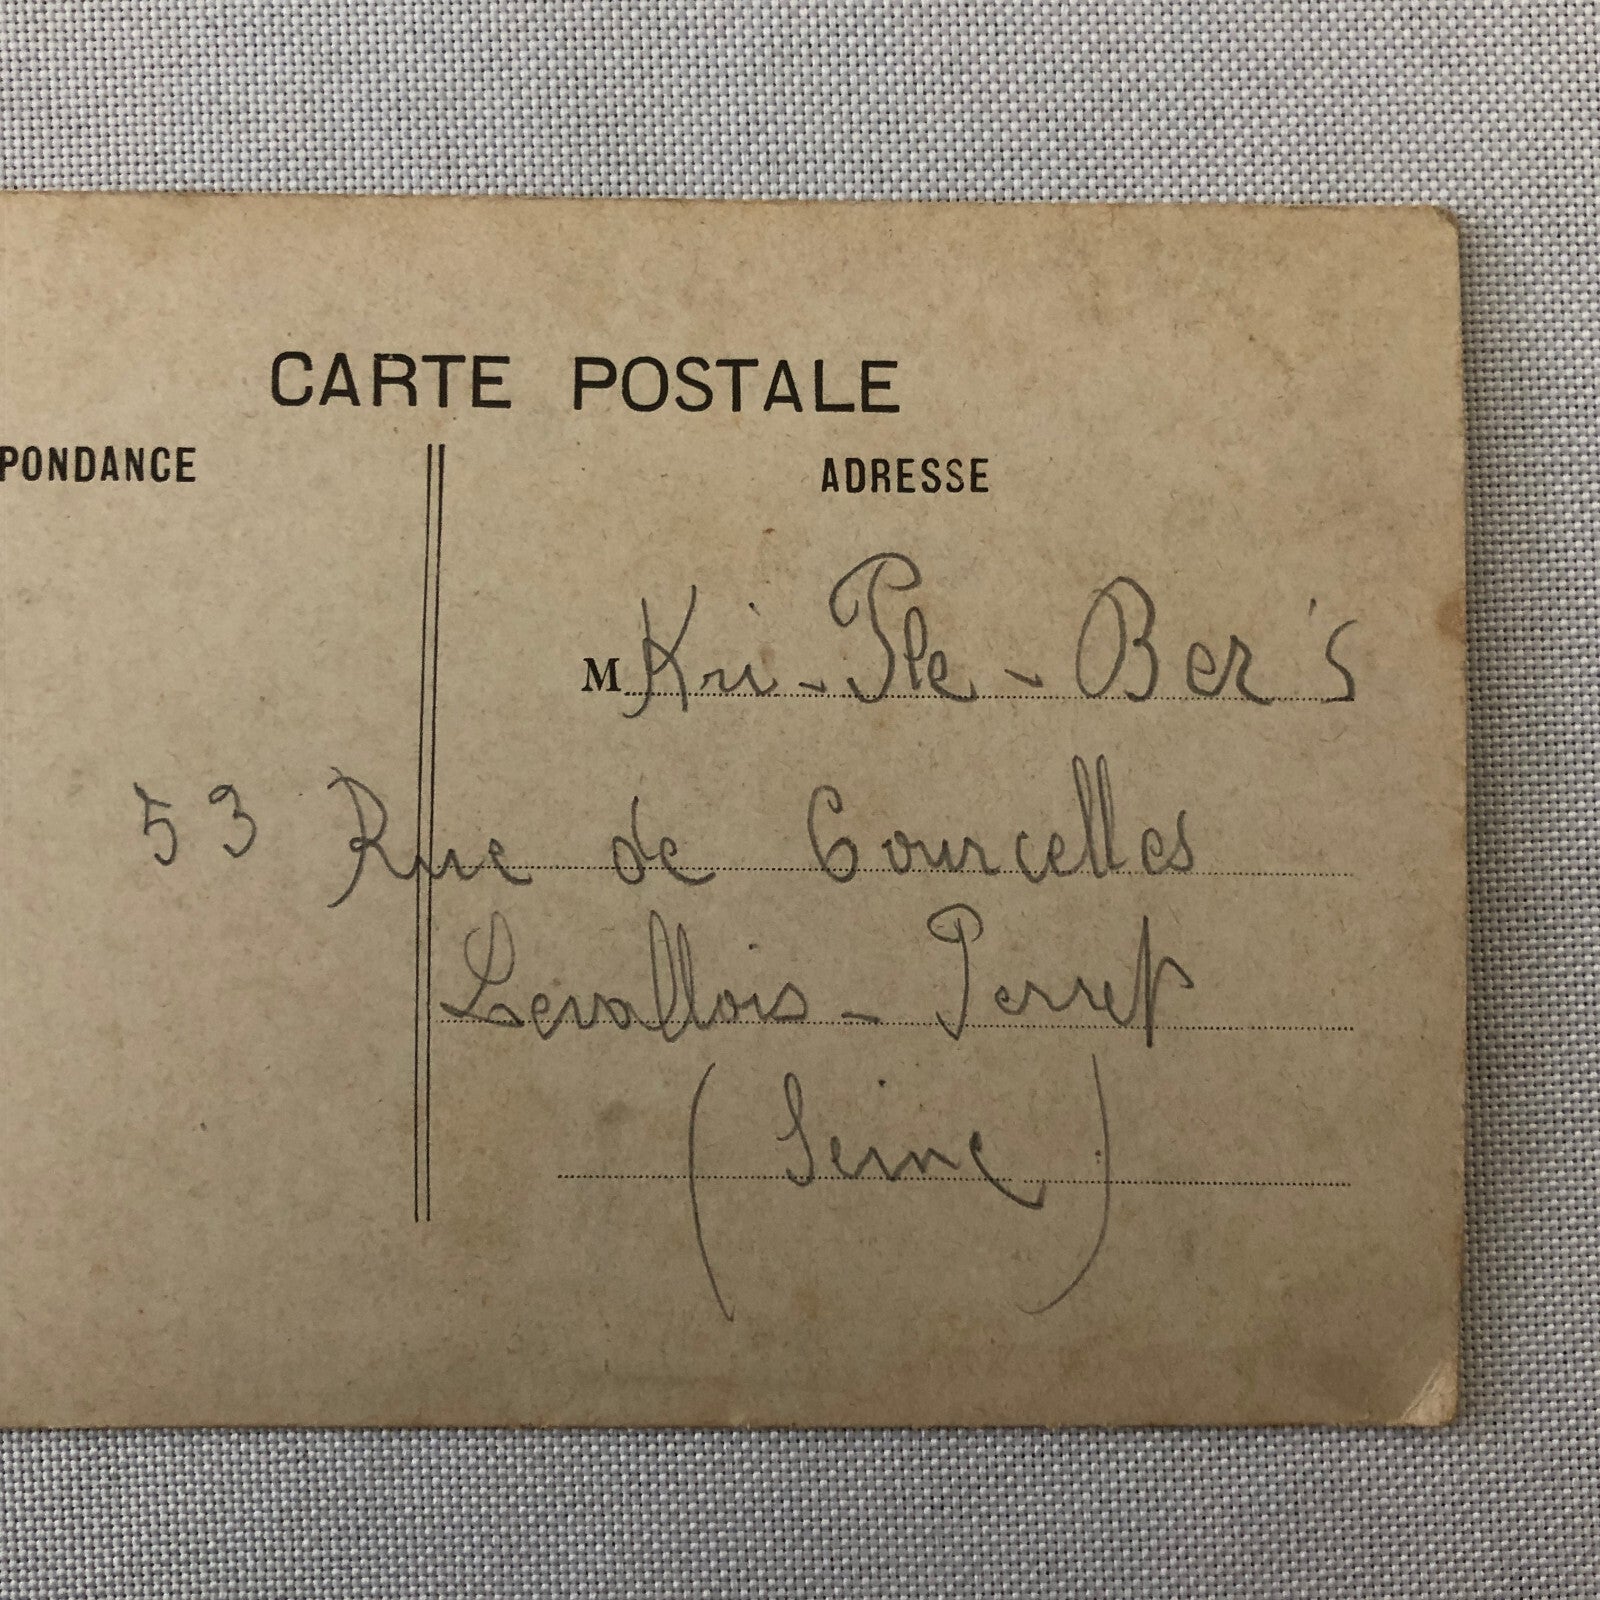 CARTE POSTALE
PONDANCE
ADRESSE
M Kri-Ple-Ber's
53 Rue de Courcelles
Levallois-Perret
(Seine)